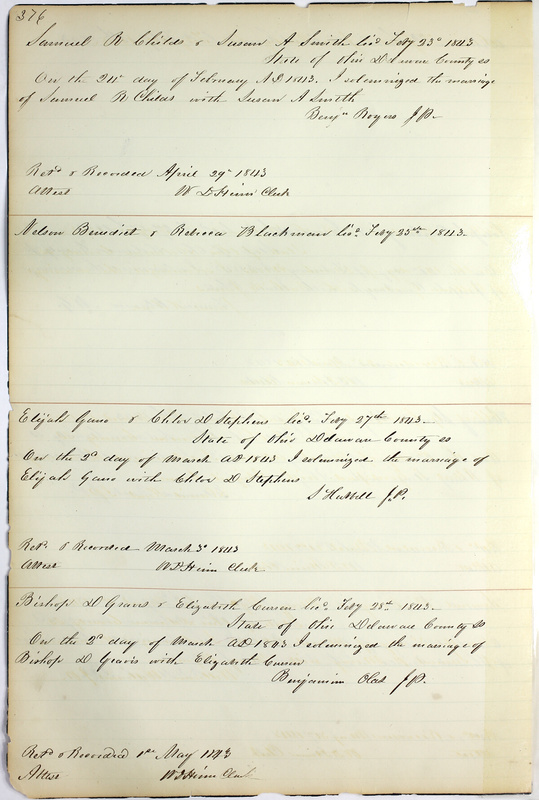 376
Samuel R Childs & Susan A Smith lics Feby 23d 1843
State of Ohio Delaware County ss
On the 24th day of February AD 1843. I solemnized the marriage
of Samuel R Childs with Susan A Smith
Benjn Rogers J.P.
Retd & Recorded April 29th 1843
Attest W D Heim Clerk
Nelson Benedict & Rebecca Blackman lics. Feby 25th 1843.
Elijah Gano & Chlor D Stephens lics. Feby 27th 1843.
State of Ohio Delaware County ss
On the 2d day of March AD 1843 I solemnized the marriage of
Elijah Gano with Chlor D Stephens
J.P.
Retd. & Recorded March 3d 1843
Attest W D Heim Clerk
Bishop D Graves & Elizabeth lics. Feby 28th 1843.
State of Ohio Delaware County ss
On the 2d day of March AD 1843 I solemnized the marriage of
Bishop D Gravis with Elizabeth
Benjamin J.P.
Retd & Recorded 1st May 1843
Attest W D Heim Clerk